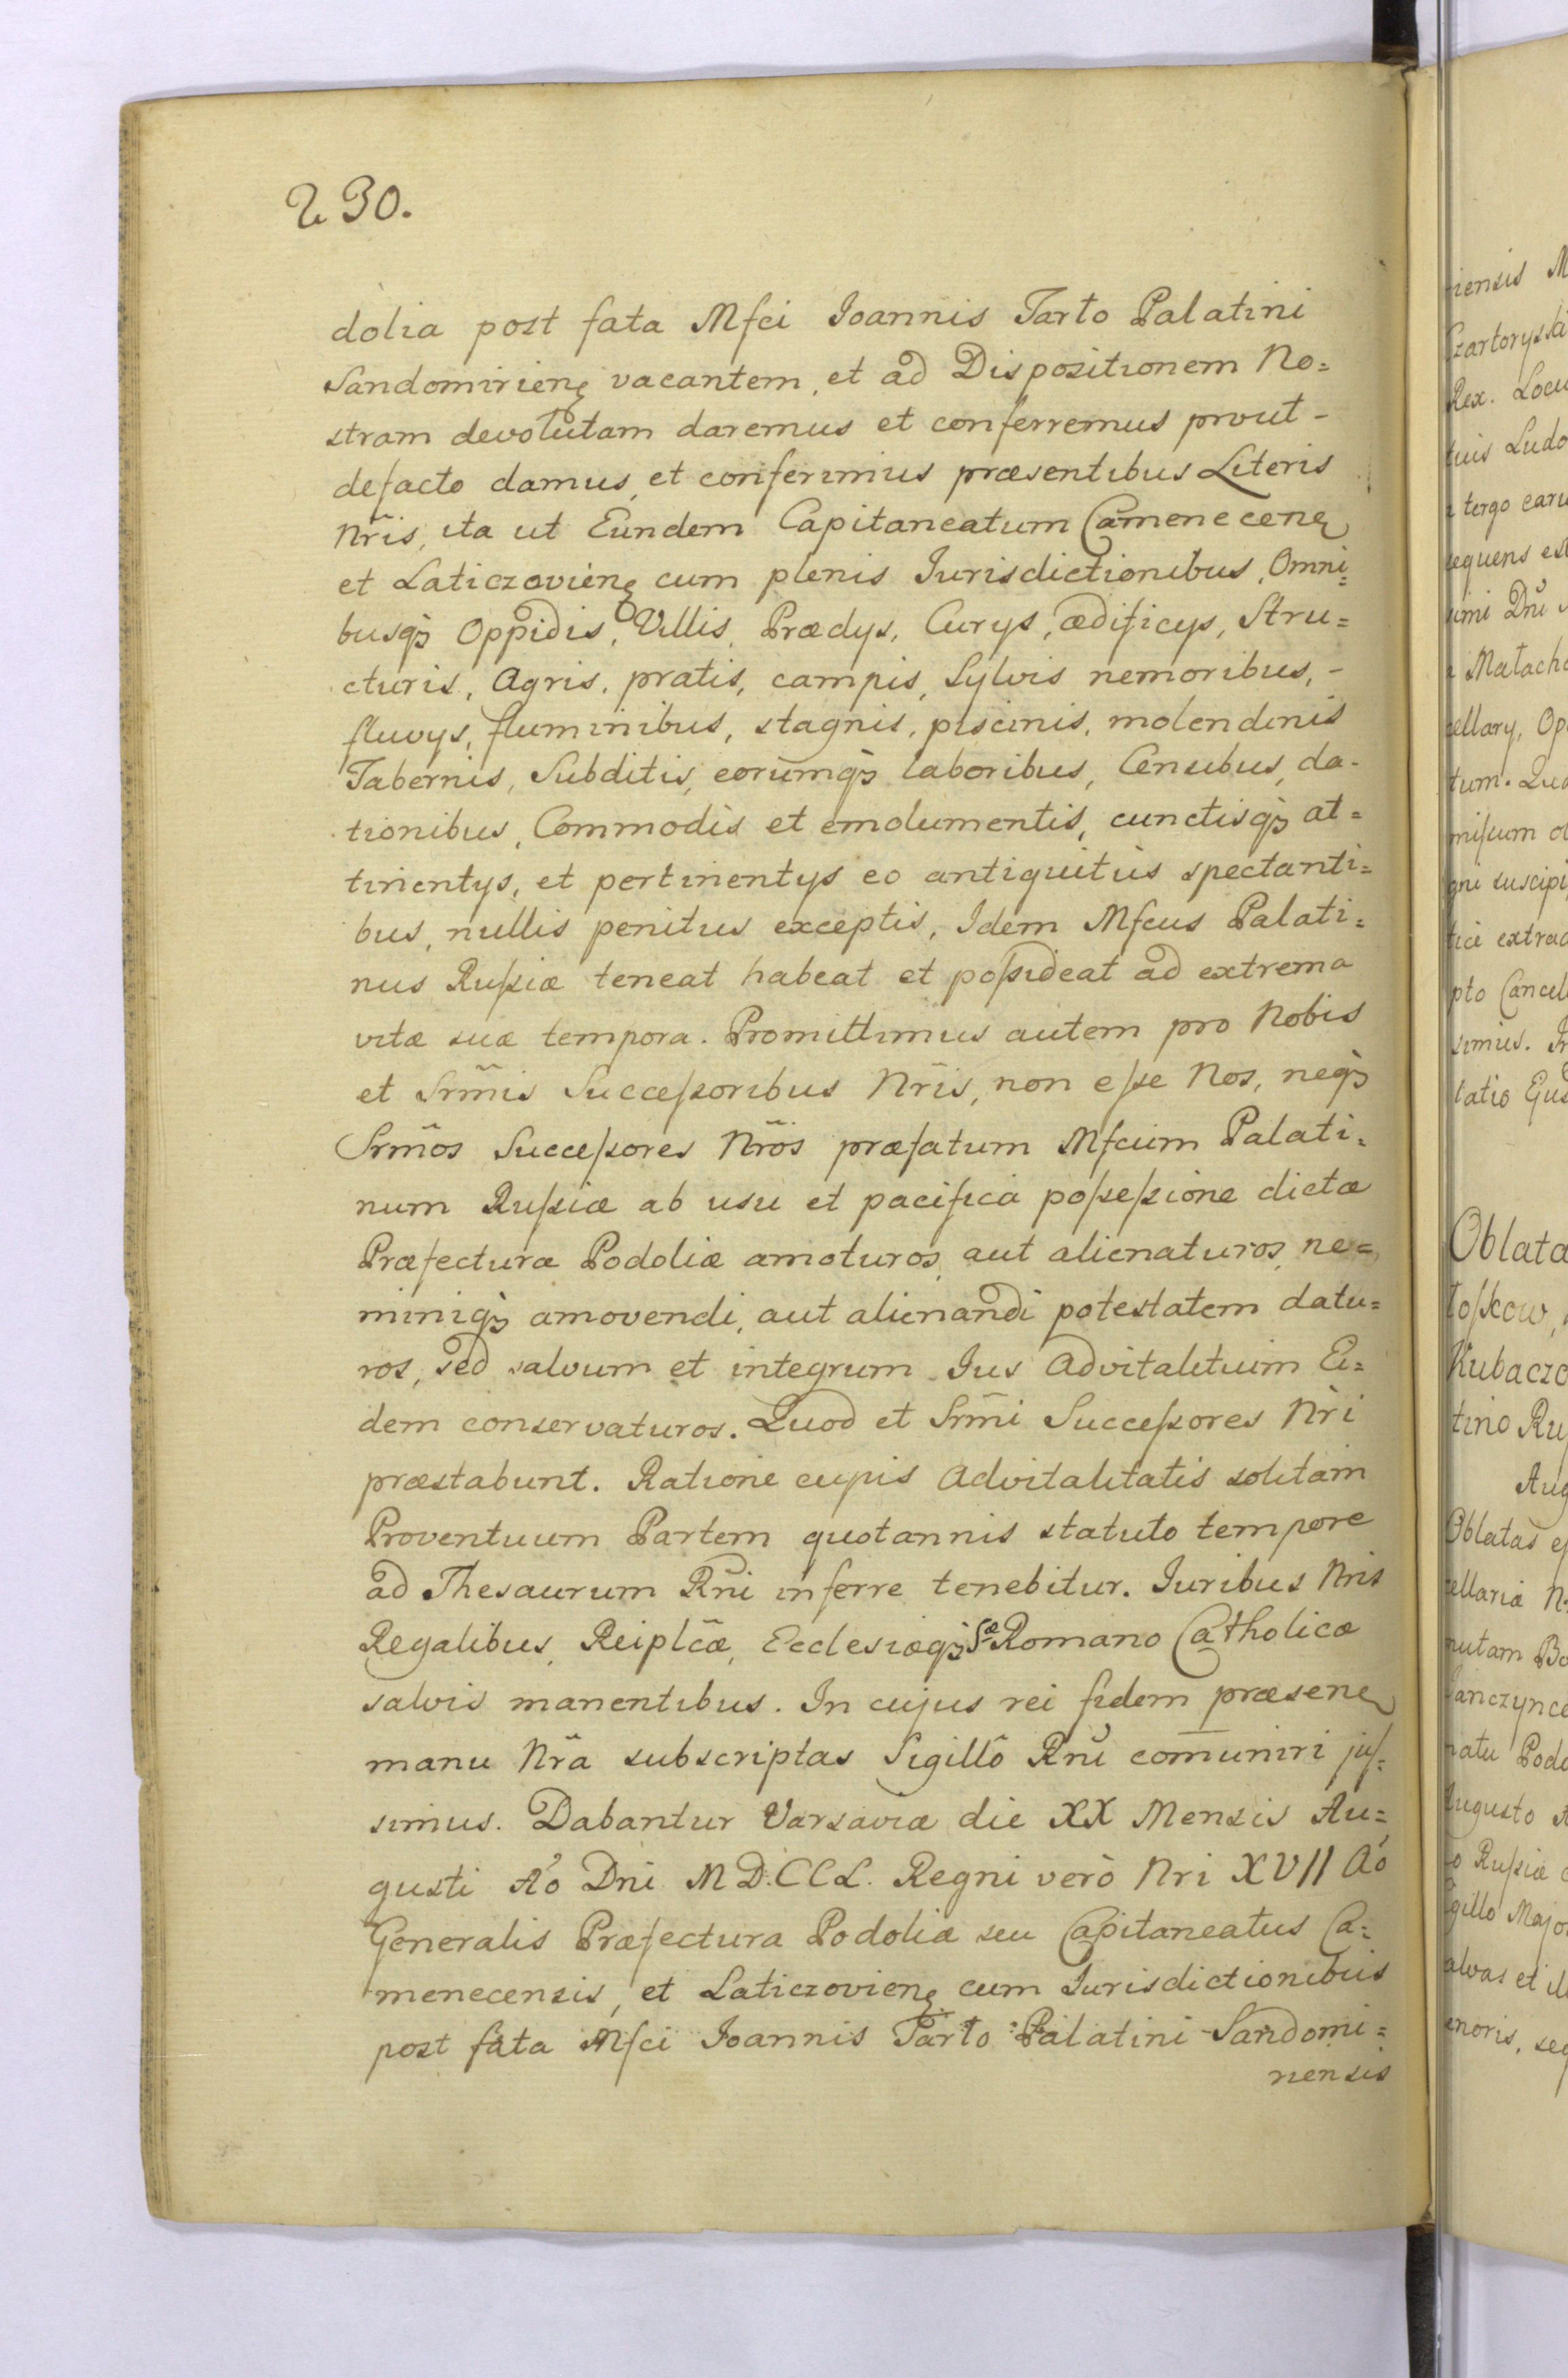 230.
dolia post fata Mfci Joannis Tarło Palatini
Sandomirienę vacantem, et ad Dispositionem No=
stram devolutam daremus et conferremus prout-
defacto damus, et conferimus præsentibus Literis
Nr̃is, ita ut Eundem Capitaneatum Camenecenę
et Laticzovienę cum plenis Jurisdictionibus, Omni=
busq̃ Oppidis, Villis, Prædys, Curys, ædificys, Stru=
cturis, Agris, pratis, campis, Sylvis nemoribus, -
fluvys, fluminibus, stagnis, piscinis, molendinis
Tabernis, Subditis, eorumq̃ laboribus, Censibus, da-
tionibus, Commodis et emolumentis, cunctisq̃ at=
tinentys, et pertinentys eo antiquitùs spectanti=
bus, nullis penitus exceptis, Idem Mfcus Palati=
nus Ruſsiæ teneat habeat et poſsideat ad extrema
vitæ suæ tempora. Promittimus autem pro Nobis
et Srm̃is Succeſsoribus Nr̃is, non eſse Nos, neq̃
Srm̃os Succeſsores Nr̃os præfatum Mfcum Palati=
num Ruſsiæ ab usu et pacifica poſseſsione dictæ
Præfecturæ Podoliæ amoturos, aut alienaturos, ne=
miniq̃ amovendi, aut alienandi potestatem datu=
ros, sed salvum et integrum Jus Advitalitium Ei=
dem conservaturos. Quod et Srm̃i Succeſsores Nr̃i
præstabunt. Ratione cujus Advitalitatis solitam
Proventuum Partem quotannis statuto tempore
ad Thesaurum Rñi inferre tenebitur. Juribus Nr̃is
Regalibus, Reiplc̃æ, Ecclesiæq̃ Sæ Romano Catholicæ
salvis manentibus. In cujus rei fidem præsenę
manu Nr̃a subscriptas Sigillô Rñi com̃uniri juſ=
simus. Dabantur Varsaviæ die XX Mensis Au=
gusti Aô Dni MD.CCL. Regni verò Nri XVII Aô
Generalis Præfectura Podoliæ seu Capitaneatus Ca=
menecensis, et Laticzovienę cum Jurisdictionibus
post fata Mfci Joannis Tarło Palatini Sandomi=
riensis
riensis M
Czartoryski
Rex. Locu
tuis Ludo
a tergo caru
sequens est
simi Dñi
a Małacho
cellary, Op
tum. Quo
gni suscipi
extrac
pto Cancel
simus.
latio Ejus
Oblata
Kubaczo
tino Ru
Aug
Oblatas
cellaria
Bo
natu Podo
Augusto
Ruſsiæ
gillo Majo
alvas et
enoris, seq